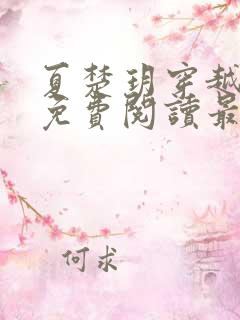 夏楚玥穿越
免費閱讀最
何求